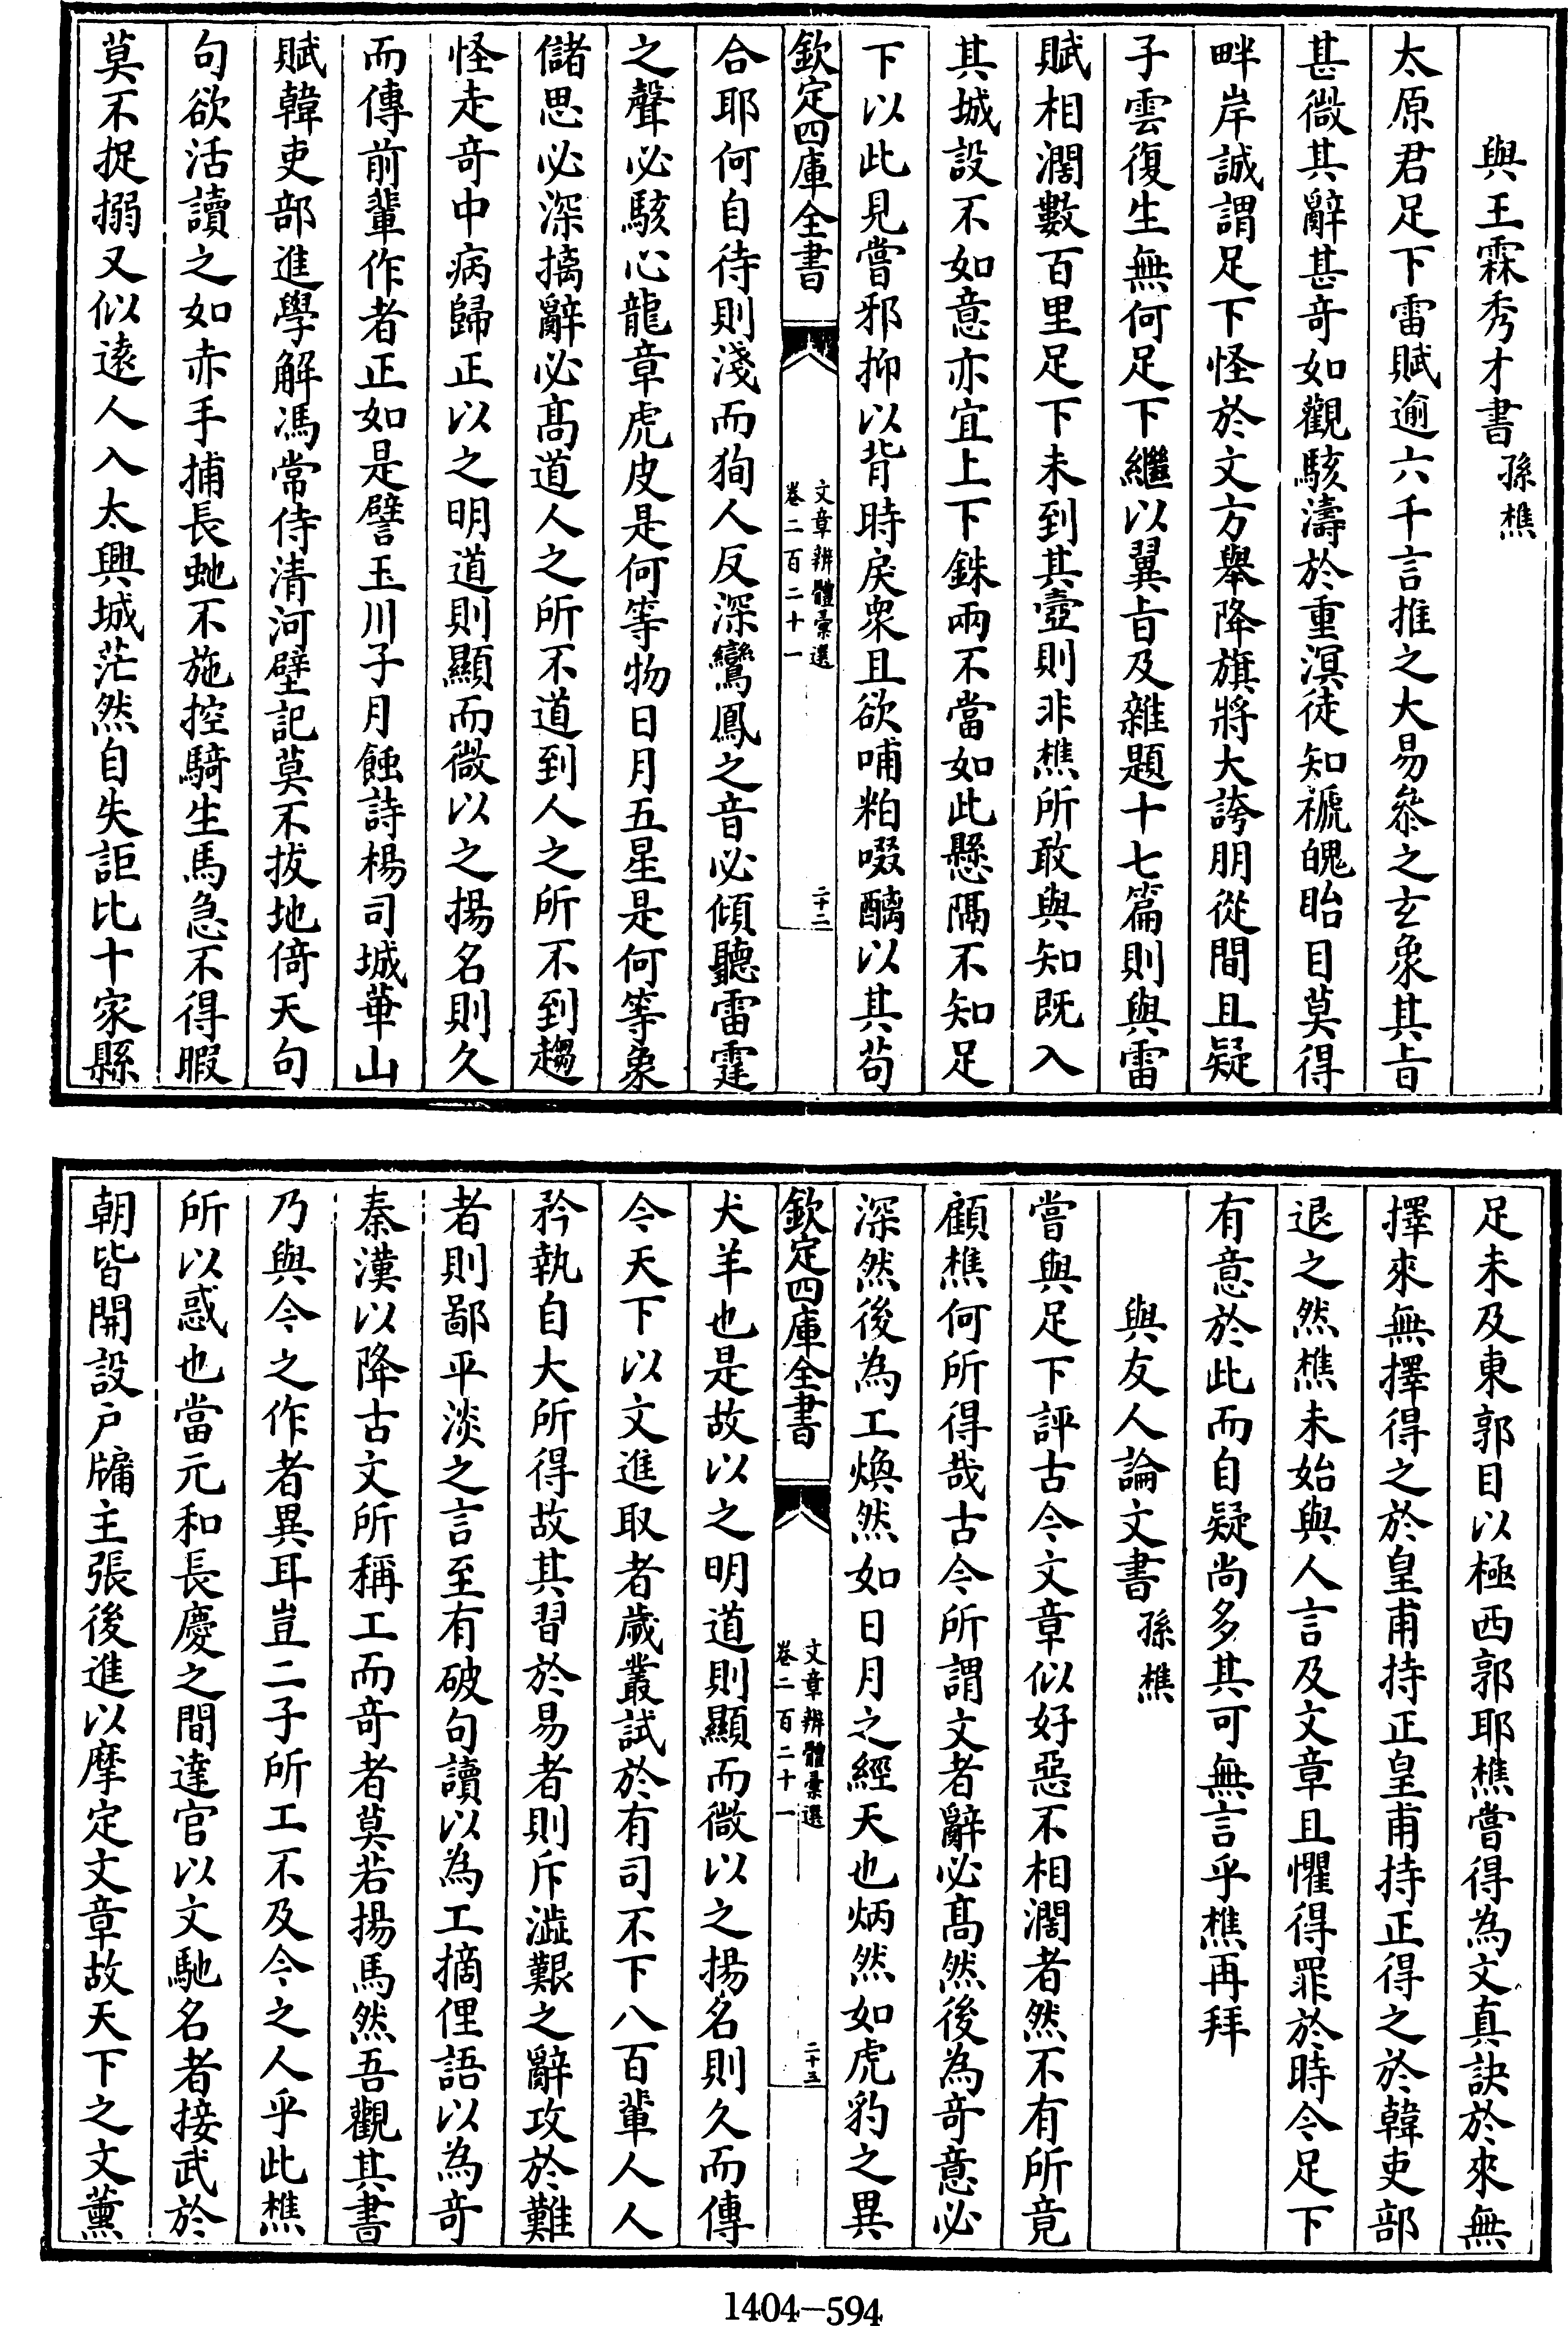 與王霖秀才書孫樵
太原君足下雷賦逾六千言推之大易參之玄象其㫖
甚微其辭甚奇如觀駭濤於重溟徒知褫魄眙目莫得
畔岸誠謂足下怪於文方舉降旗將大誇朋從間且疑
子雲復生無何足下繼以翼㫖及雜題十七篇則與雷
賦相濶數百里足下未到其壼則非樵所敢與知既入
其城設不如意亦宜上下銖兩不當如此懸隔不知足
下以此見嘗邪抑以背時戾衆且欲哺粕啜醨以其苟
欽定四庫全書
文章辨體彚選
卷二百二十一
二十二
合耶何自待則淺而狥人反深鸞鳳之音必傾聽雷霆
之聲必駭心龍章虎皮是何等物日月五星是何等象
儲思必深摛辭必髙道人之所不道到人之所不到趨
怪走奇中病歸正以之明道則顯而微以之揚名則久
而傳前輩作者正如是譬玉川子月蝕詩楊司城華山
賦韓吏部進學解馮常侍清河壁記莫不拔地倚天句
句欲活讀之如赤手捕長虵不施控騎生馬急不得暇
莫不捉搦又似逺人入太興城茫然自失詎比十家縣
足未及東郭目以極西郭耶樵嘗得為文真訣於來無
擇來無擇得之於皇甫持正皇甫持正得之於韓吏部
退之然樵未始與人言及文章且懼得罪於時今足下
有意於此而自疑尚多其可無言乎樵再拜
與友人論文書孫樵
嘗與足下評古今文章似好惡不相濶者然不有所竟
顧樵何所得哉古今所謂文者辭必髙然後為奇意必
深然後為工煥然如日月之經天也炳然如虎豹之異
欽定四庫全書
文章辨體彚選
卷二百二十一
二十三
犬羊也是故以之明道則顯而微以之揚名則久而傳
今天下以文進取者歲叢試於有司不下八百輩人人
矜執自大所得故其習於易者則斥澁艱之辭攻於難
者則鄙平淡之言至有破句讀以為工摘俚語以為奇
秦漢以降古文所稱工而奇者莫若揚馬然吾觀其書
乃與今之作者異耳豈二子所工不及今之人乎此樵
所以惑也當元和長慶之間達官以文馳名者接武於
朝皆開設户牖主張後進以摩定文章故天下之文薰
1404—594